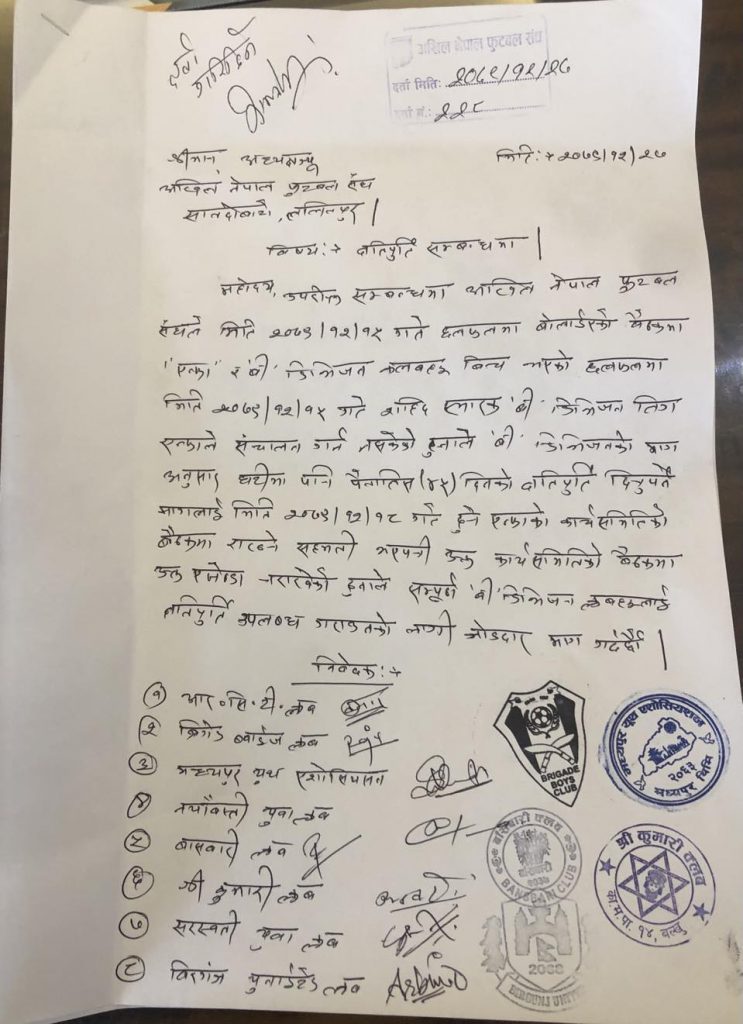 दर्ता गरिदिने
अखिल नेपाल फुटबल संघ
दर्ता मितिः २०७९/१२/२७
दर्ता नं.: २२८
श्रीमान अध्यक्षज्यू
मितिः+ २०७९/१२/२७
अखिल नेपाल फुटबल संघ
सातदोबाटो, ललितपुर |
विषयः+ क्षतिपुर्ति सम्बन्धमा |
महोदय, उपरोक्त सम्बन्धमा अखिल नेपाल फुटबल
संघले मिति २०७९/१२/१५ गते छलफलमा बोलाईएको बैठकमा
"एन्फा" र 'बी' डिभिजन क्लवहरु बिच भएको छलफलमा
मिति २०७९/१२/१५ गते शहिद स्मारक 'बी' डिभिजन लिग
एन्फाले संचालन गर्न नसकेको हुनाले 'बी' डिभिजनको माग
अनुसार घटीमा पनि पैतालिस (४५) दिनको क्षतिपुर्ति दिनुपर्ने
मागलाई मिति २०७९/१२/१८ गते हुने एन्फाको कार्यसमितिको
बैठकमा राख्ने सहमती भएपनी उक्त कार्यसमितिको बैठकमा
उक्त एजेण्डा नराखेको हुनाले सम्पूर्ण 'बी' डिभिजन क्लबहरुलाई
क्षतिपुर्ति उपलब्ध गराउनको लागी जोडदार माग गर्दछौं |
निवेदकः+
१ आर॰सि॰टी॰ क्लव
२ ब्रिगेड ब्वाईज क्लव
३ मध्यपुर युथ एशोसिएसन
४ नयाँबस्ती युवा क्लव
५ बासबारी क्लव
६ श्री कुमारी क्लव
७ सरस्वती युवा क्लव
८ बिरगंज युनाईटेड क्लव
BRIGADE
BOYS
CLUB
मध्यपुर यूथ एशोसियसन
२०६२
मध्यपुर थिमि
बाँसबारी क्लव
बाँसबारी
2038
BANSBARI CLUB
श्री कुमारी क्लव
का.म.पा. १४, बल्खु
2068
BIRGUNJ UNITED